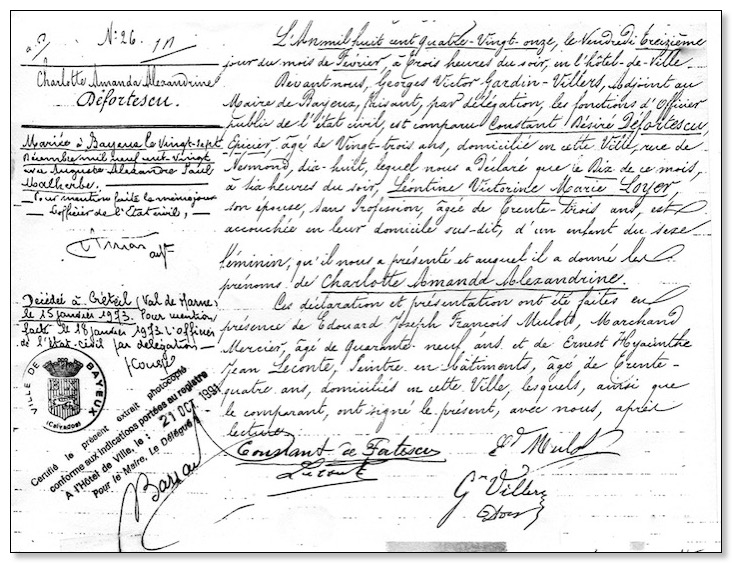 N: 26.
Charlotte Amanda Alexandrine
Défortescu.
Mariée à Bayeux le Vingt-sept
Décembre mil neuf cent Vingt
avec Auguste Alexandre Paul
Malherbe.
Pour mention faite le même jour
L'officier de l'État civil,
Décédée à Créteil (Val de Marne)
le 15 janvier 1973. Pour mention
faite le 18 janvier 1973 L'Officier
de l'état-civil par délégation
VILLE DE BAYEUX
(Calvados)
Certifié le présent extrait photocopié
conforme aux indications portées au registre
A l'Hôtel de Ville, le : 21 OCT 1991
Pour le Maire, Le Délégué
L'An mil huit cent quatre-Vingt-onze, le Vendredi Treizième
jour du mois de Février, à Trois heures du soir, en l'hôtel-de-Ville.
Devant nous, Georges Victor Gardin-Villers, Adjoint au
Maire de Bayeux, faisant, par délégation, les fonctions d'Officier
public de l'état civil, est comparu Constant Désiré Défortescu,
Épicier, âgé de Vingt-trois ans, domicilié en cette Ville, rue de
Nesmond, dix-huit, lequel nous a déclaré que le Dix de ce mois,
à six heures du soir, Léontine Victorine Marie Loyer,
son épouse, sans Profession, âgée de Trente-trois ans, est
accouchée en leur domicile sus-dit, d'un enfant du sexe
féminin, qu'il nous a présenté et auquel il a donné les
prénoms de Charlotte Amanda Alexandrine.
Ces déclaration et présentation ont été faites en
présence de Edouard Joseph François Mulot, Marchand
Mercier, âgé de Quarante neuf ans et de Ernest Hyacinthe
Jean Leconte, Peintre en bâtiments, âgé de Trente-
quatre ans, domiciliés en cette Ville, lesquels, ainsi que
le comparant, ont signé le présent, avec nous, après
lecture.
Constant de Fortescu
Ed Mulot
Leconte
Gn Villers